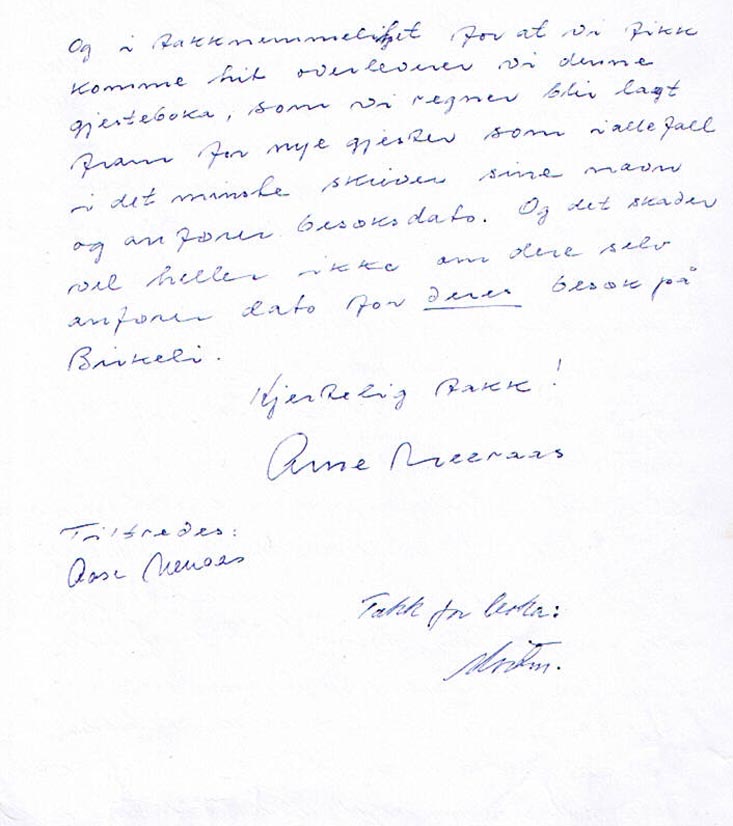 Og i takknemmelighet for at vi fikk
komme hit overleverer vi denne
gjesteboka, som vi regner blir lagt
fram for nye gjester som iallefall
i det minste skriver sine navn
og anfører besøksdato. Og det skader
vel heller ikke om dere selv
anfører dato for deres besøk på
Birkeli.
Hjertelig takk!
Arne
Tiltredes:
Aase
Takk for boka: